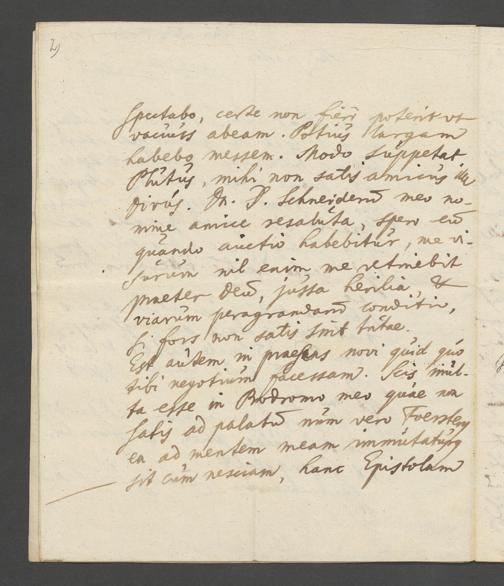 2)
spectabo, certe non fieri poterit ut
vacuus abeam. Potius largam
habebo messem. Modo suppetat
Plutus, mihi non satis amicus ille
divus. Dn. D. Schneiderū meo no-
mine amice resaluta, spero eū
quando auctio habebitur, me vi-
surum nil enim me retinebit
praeter Deū, jussa herilia, &
viarum peragrandarū conditio,
si fors non satis sint tutae.
Est autem in praesens novi quid quo
tibi negotium facessam. Scis mul-
ta esse in Prodromo meo quae non
satis ad palatū num vero Foerster
ea ad mentem meam immutaturus
sit cum nesciam, hanc Epistolam